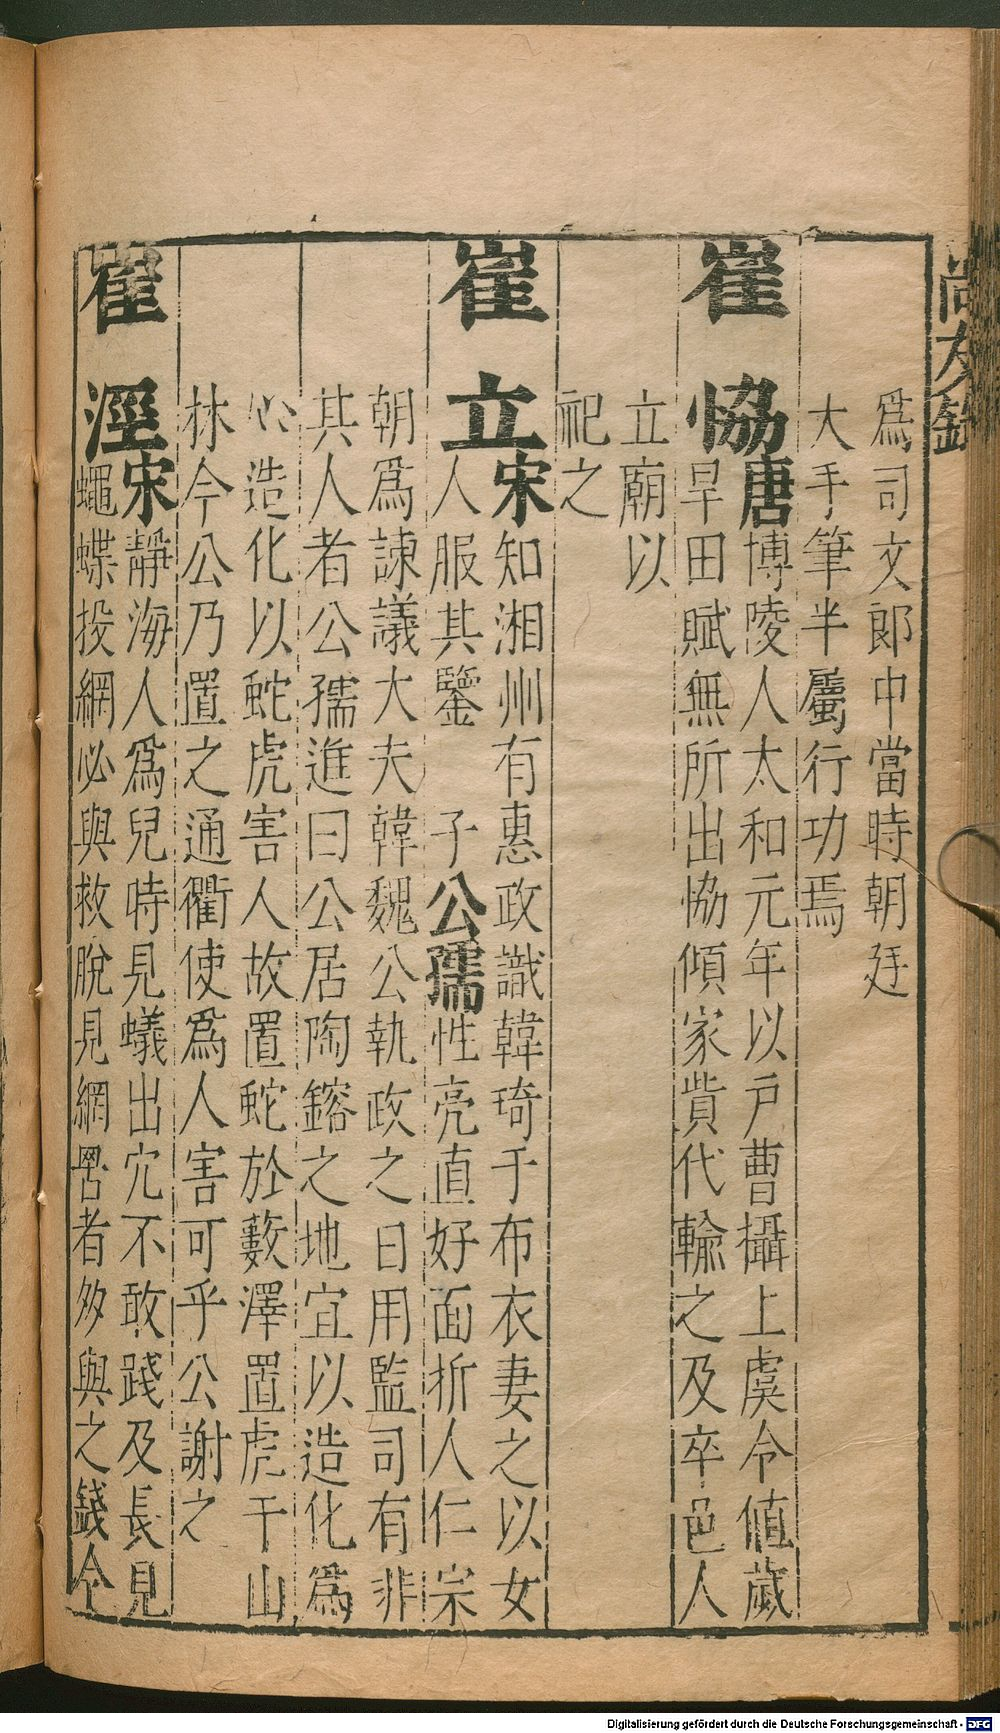 尚友錄
為司文郎中當時朝廷
大手筆半屬行功焉
崔協唐博陵人太和元年以戶曹攝上虞令値歲
旱田賦無所出協傾家貲代輸之及卒邑人
立廟以
祀之
崔立宋知湘州有惠政識韓琦于布衣妻之以女
人服其鑒 子公孺性亮直好面折人仁宗
朝爲諫議大夫韓魏公執政之日用監司有非
其人者公孺進曰公居陶鎔之地宜以造化爲
心造化以蛇虎害人故置蛇於藪澤置虎于山
林今公乃置之通衢使爲人害可乎公謝之
崔涇宋靜海人爲兒時見蟻出穴不敢踐及長見
蠅蝶投網必與救脫見網罟者多與之錢令
Digitalisierung gefördert durch die Deutsche Forschungsgemeinschaft - DFG